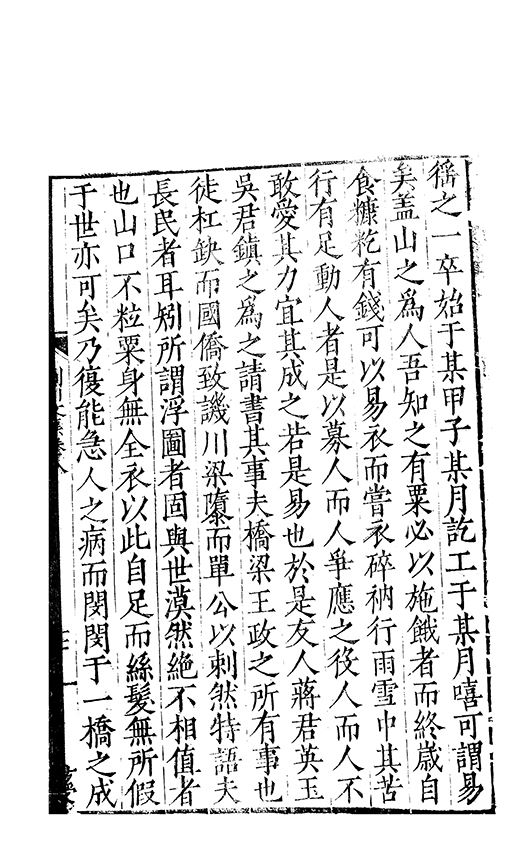 徭之一卒始于某甲子某月訖工于某月嘻可謂易
矣盖山之爲人吾知之有粟必以施餓者而終歲自
食糠籺有錢可以易衣而嘗衣碎衲行雨雪中其苦
行有足動人者是以募人而人爭應之役人而人不
敢愛其力宜其成之若是易也於是友人蔣君英玉
吳君鎮之爲之請書其事夫橋梁王政之所有事也
徒杠缺而國僑致譏川梁隳而單公以刺然特語夫
長民者耳矧所謂浮圖者固與世漠然絶不相值者
也山口不粒粟身無全衣以此自足而絲髮無所假
于世亦可矣乃復能急人之病而閔閔于一橋之成